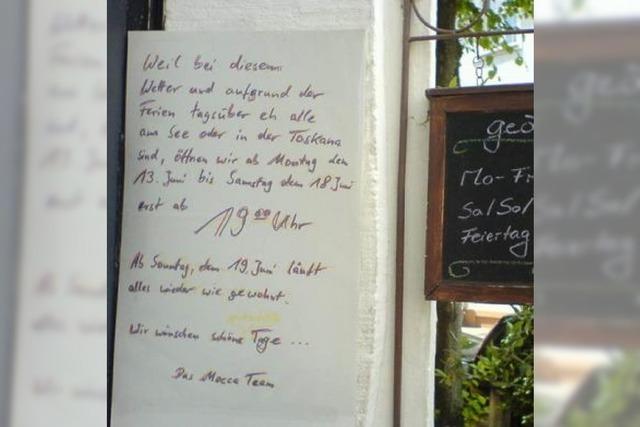 Weil bei diesem
Wetter und aufgrund der
Ferien tagsüber eh alle
am See oder in der Toskana
sind, öffnen wir ab Montag den
13. Juni bis Samstag dem 18 Juni
erst ab
19 00 Uhr
Ab Sonntag, dem 19. Juni läuft
alles wieder wie gewohnt.
Wir wünschen schöne Tage ...
Das Mocca Team
geö
Mo-Fr
Sa/So/
Feiertag